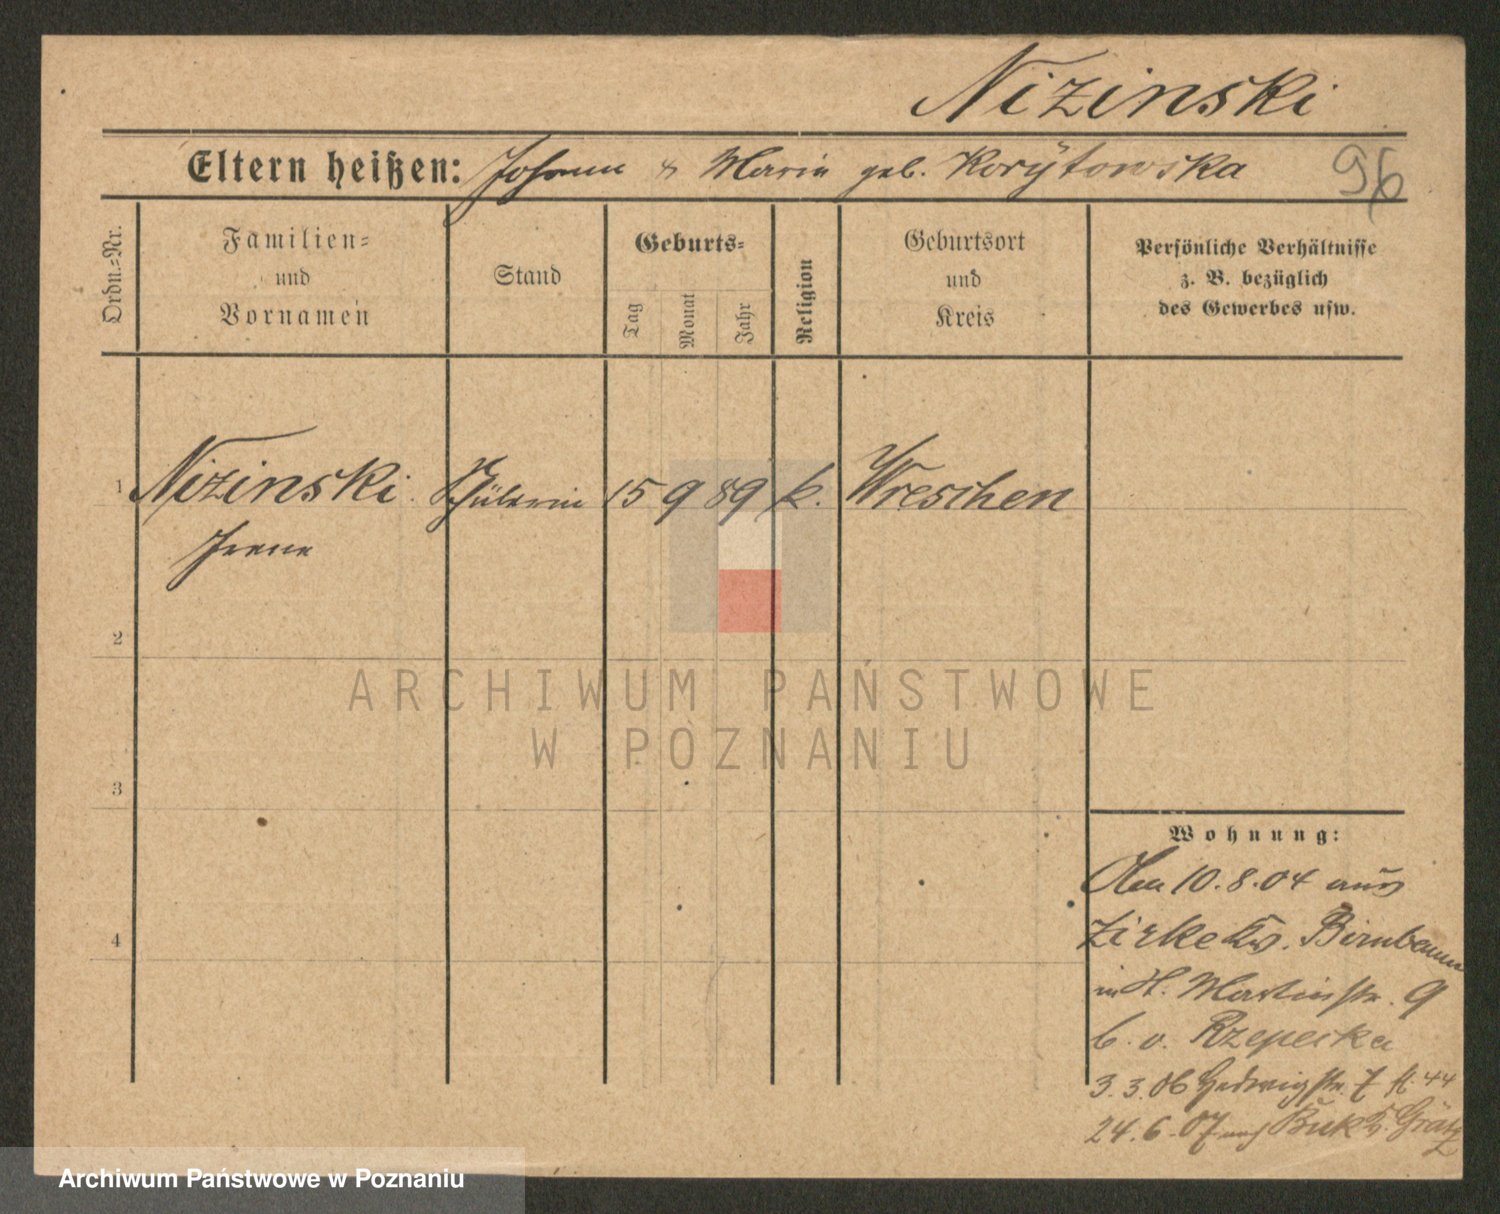 Nizinski
Eltern heißen: Johann & Maria geb. Korÿtowska
96
Ordn.=Nr.
Familien=
und
Vornamen
Stand
Geburts=
Tag
Monat
Jahr
Religion
Geburtsort
und
Kreis
Persönliche Verhältnisse
z. B. bezüglich
des Gewerbes usw.
1 Nizinski Schülerin 15 9 89 k. Wreschen
Irene
2
3
4
ARCHIWUM PAŃSTWOWE
W POZNANIU
Wohnung:
Am 10.8.04 aus
Zirke Kr. Birnbaum
in St. Martinstr. 9
b. v. Rzepecka
3.3.06 Hedwigstr. 7
24.6.07 nach Buk Kr. Grätz
Archiwum Państwowe w Poznaniu